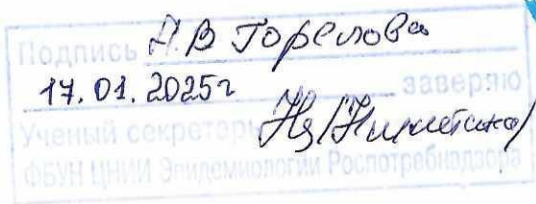 Подпись А.В Горелова
17.01.2025г заверяю
Ученый секретарь /Никитина/
ФБУН ЦНИИ Эпидемиологии Роспотребнадзора